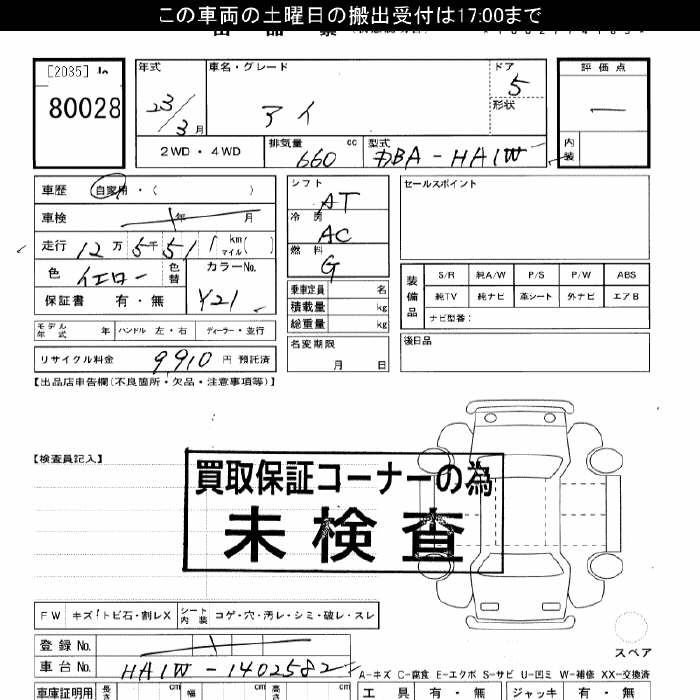 この車両の土曜日の搬出受付は17:00まで
[2035]
80028
年式 23/3月
車名・グレード アイ
ドア 5
形状
評価点 —
内装
2WD・4WD
排気量 660 cc
型式 DBA-HA1W
車歴 自家用・( )
車検 年 月
走行 12万5千51 km マイル( )
色 イエロー 色替 カラーNo. Y21
保証書 有・無
シフト AT
冷房 AC
燃料 G
乗車定員 名
積載量 kg
総重量 kg
セールスポイント
装備品
S/R 純A/W P/S P/W ABS
純TV 純ナビ 革シート 外ナビ エアB
ナビ型番:
モデル年式 年 ハンドル 左・右 ディーラー・並行
名変期限 月 日
後日品
リサイクル料金 9910 円 預託済
【出品店申告欄(不良箇所・欠品・注意事項等)】
【検査員記入】
買取保証コーナーの為
未検査
FW キズ!トビ石・割レX シート内装 コゲ・穴・汚レ・シミ・破レ・スレ
スペア
登録No.
車台No. HA1W-1402582
A-キズ C-腐食 E-エクボ S-サビ U-凹ミ W-補修 XX-交換済
車庫証明用 長さ cm 幅 cm 高さ cm
工具 有・無 ジャッキ 有・無